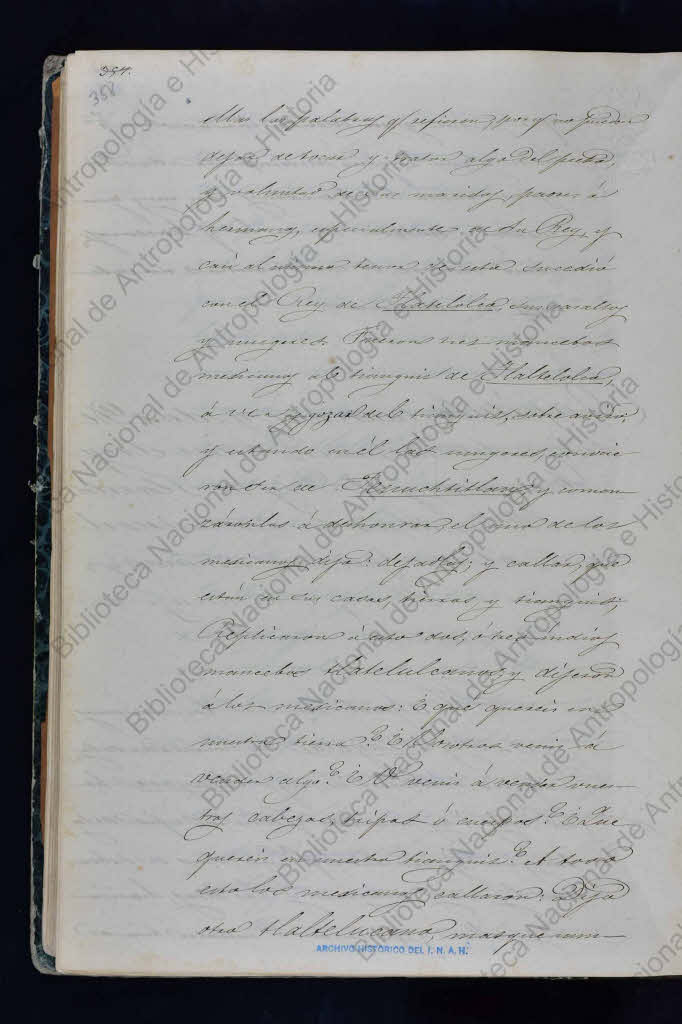 354.
358
Mas las palabras q.e refieren, por q.e no pueden
dejar de tocar y tratar algo del pueblo,
y voluntad de sus maridos, padres ó
hermanos, especialmente de su Rey, y
casi al mismo tenor de esta sucedió
con el Rey de Tlatelolco, sus vasallos
y mugeres. Fueron tres mancebos
mexicanos al tianguis de Tlaltelolco,
á ver y gozar del tianguis, sobre aviso,
y estando en él las mugeres, conocie
ron ser de Tenuchtitlan, y comen
záronles á deshonrar, el uno de los
mexicanos dijo: dejadlos; y callar, que
están en sus casas, tierras, y tianguis;
Replicaron á esto dos, ó tres indios
mancebos tlatelulcanos, y dijeron
á los mexicanos: ¿que quereis en
nuestra tierra? ¿Vosotros venis á
vender algo? ¿O venis á vender vues-
tras cabezas, tripas ó cuerpos? ¿Que
quereis en nuestro tianguis? A todo
esto los mexicanos callaron: Dijo
otro tlaltelucano, mas que nun-
ARCHIVO HISTORICO DEL I. N. A. H.
Biblioteca Nacional de Antropología e Historia